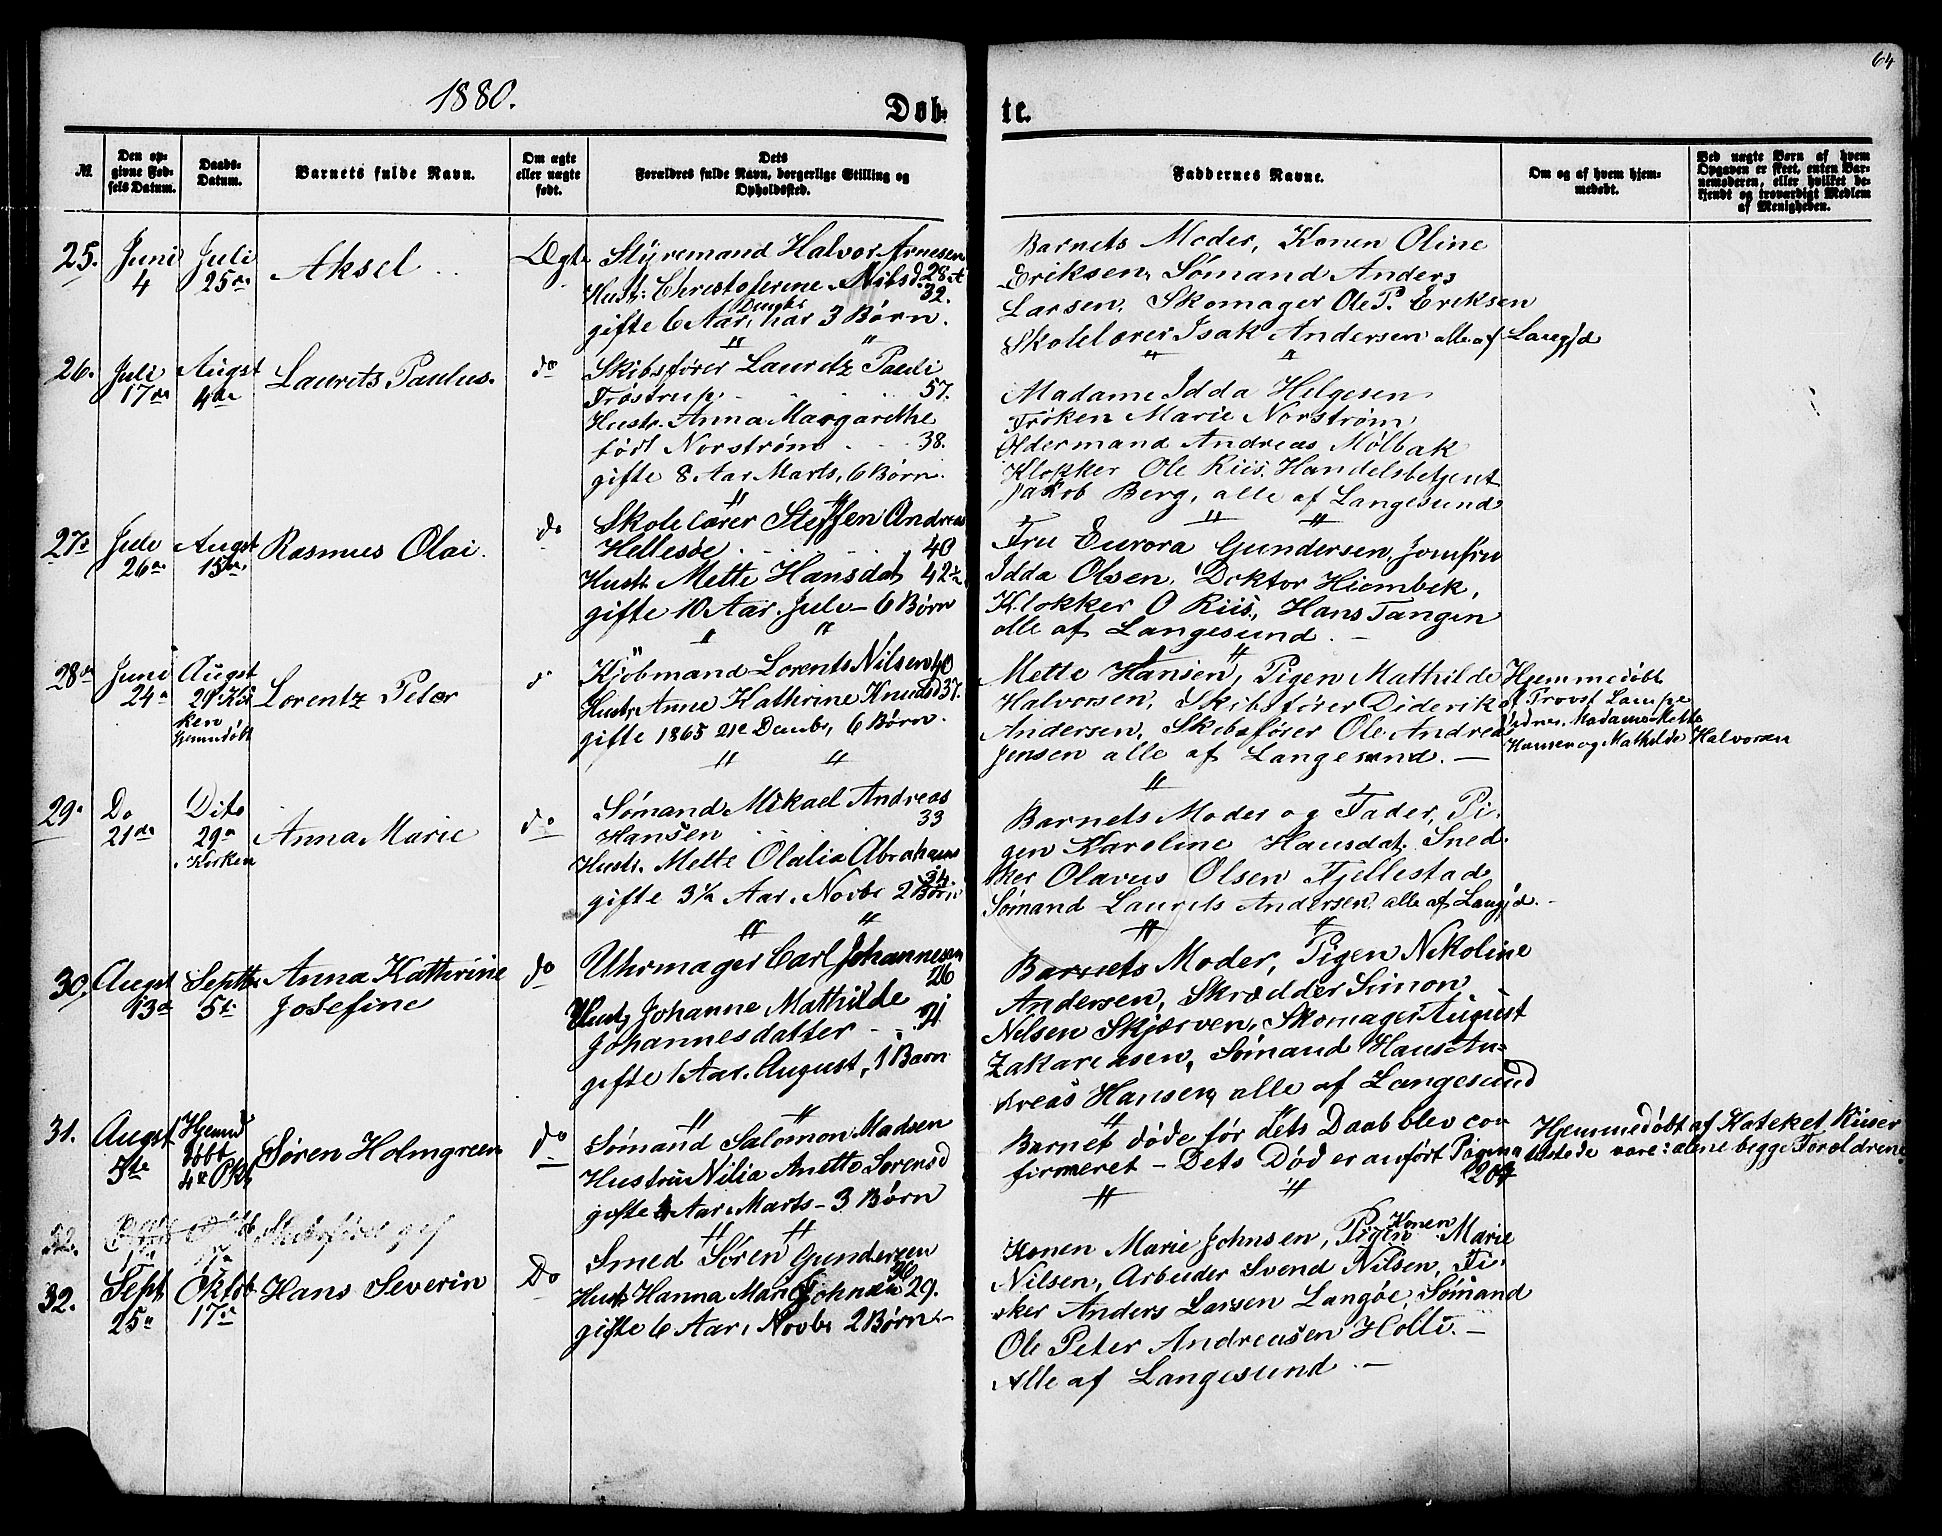 64
1880.
Døb-
te.
№
Den op-
givne Fød-
sels Datum.
Daabs-
Datum.
Barnets fulde Navn.
Om ægte
eller uægte
født.
Dets
Forældres fulde Navn, borgerlige Stilling og
Opholdssted.
Faddernes Navne.
Om og af hvem hjem-
medøbt.
Ved uægte Børn af hvem
Opgaven er skeet, enten Bar-
nemoderen, eller hvilket be-
kjendt og troværdigt Medlem
af Menigheden.
25.
Juni
4
Juli
25de
Aksel
Ægte
Styremand Halvor Arnesen
Hust: Christoferine Nilsd. 28
32.
gifte 6 Aar, har 3 Børn.
Barnets Moder, Konen Oline
Eriksen, Sømand Anders
Larsen, Skomager Ole P. Eriksen
Skolelærer Isak Andersen alle af Langsd
26.
Juli
17de
Augst
4de
Laurits Paulus.
do
Skibsfører Lauritz Pauli
Trøstrup 57.
Hustr. Anna Margarethe
født Norstrøm 38.
gifte 8 Aar Marts, 6 Børn.
Madame Idda Helgesen
Frøken Marie Norstrøm
Oldermand Andreas Mølbak
Klokker Ole Riis, Handelsbetjent
Jakob Berg, alle af Langesund
27.
Jule
26de
Augst
15de
Rasmus Olai.
do
Skolelærer Steffen Andreas
Hellesøe 40
Hustr Mette Hansdat 42½
gifte 10 Aar Jule – 6 Børn
Fru Eurora Gundersen, Jomfru
Idda Olsen, Doktor Hiembek,
Klokker O Riis, Hans Tangen
alle af Langesund. –
28de
Juni
24de
Augst
29 Kir
ken
hjemdøbt
Lorentz Peter
do
Kjøbmand Lorents Nilsen 40
Hustr Anne Kathrine Knudsd 37.
gifte 1865 21e Decmbr, 6 Børn.
Mette Hansen, Pigen Mathilde
Halvorsen, Skibsfører Diderik
Andersen, Skibsfører Ole Andreas
Jensen alle af Langesund. –
Hjemmedøbt
af Provst Lampe
Vidner, Madame Mette
Hansen og Mathilde Halvorsen
29.
Do
21de
Dito
29de
Kirken
Anna Marie
do
Sømand Mikael Andreas
Hansen 33
Hustr. Mette Olalia Abrahams
34.
gifte 3½ Aar, Novbr 2 Børn
Barnets Moder og Fader, Pi-
gen Karoline Hansdat. Sned-
ker Olavus Olsen Fjellestad
Sømand Laurits Andersen alle af Langsd. –
30.
Augst
13de
Septbr
5te
Anna Kathrine
Josefine
do
Uhrmager Carl Johannesen
26
Hustr Johanne Mathilde
Johannesdatter 21
gifte 1 Aar. August, 1 Barn
Barnets Moder, Pigen Nikoline
Andersen, Skrædder Simon
Nilsen Skjærven, Skomager August
Zakariasen, Sømand Hans An-
dreas Hansen, alle af Langesund
31.
Augst
5te
Hjemd
døbt
4de Okt
Søren Holmgreen
do
Sømand Salomon Madsen
Hustru Nilia Anette Sørensd
gifte 4 Aar Marts – 3 Børn
Barnet døde før dets Daab blev con
firmeret – Dets Død er anført Pagina
204
Hjemmedøbt af Kateket Riiser
tilstede vare: alene begge Forældrene
32.
Skibsfører
32.
Sept
25de
Oktob
17de
Hans Severin
Do
Smed Søren Gundersen
Hust Hanna Mari Johnsen 29.
gifte 6 Aar, Novbr 2 Børn –
Konen Marie Johnsen, Pigen Konen Marie
Nilsen, Arbeider Svend Nilsen, Fi-
sker Anders Larsen Langøe, Sømand
Ole Peter Andreasen Holte. –
Alle af Langesund. –